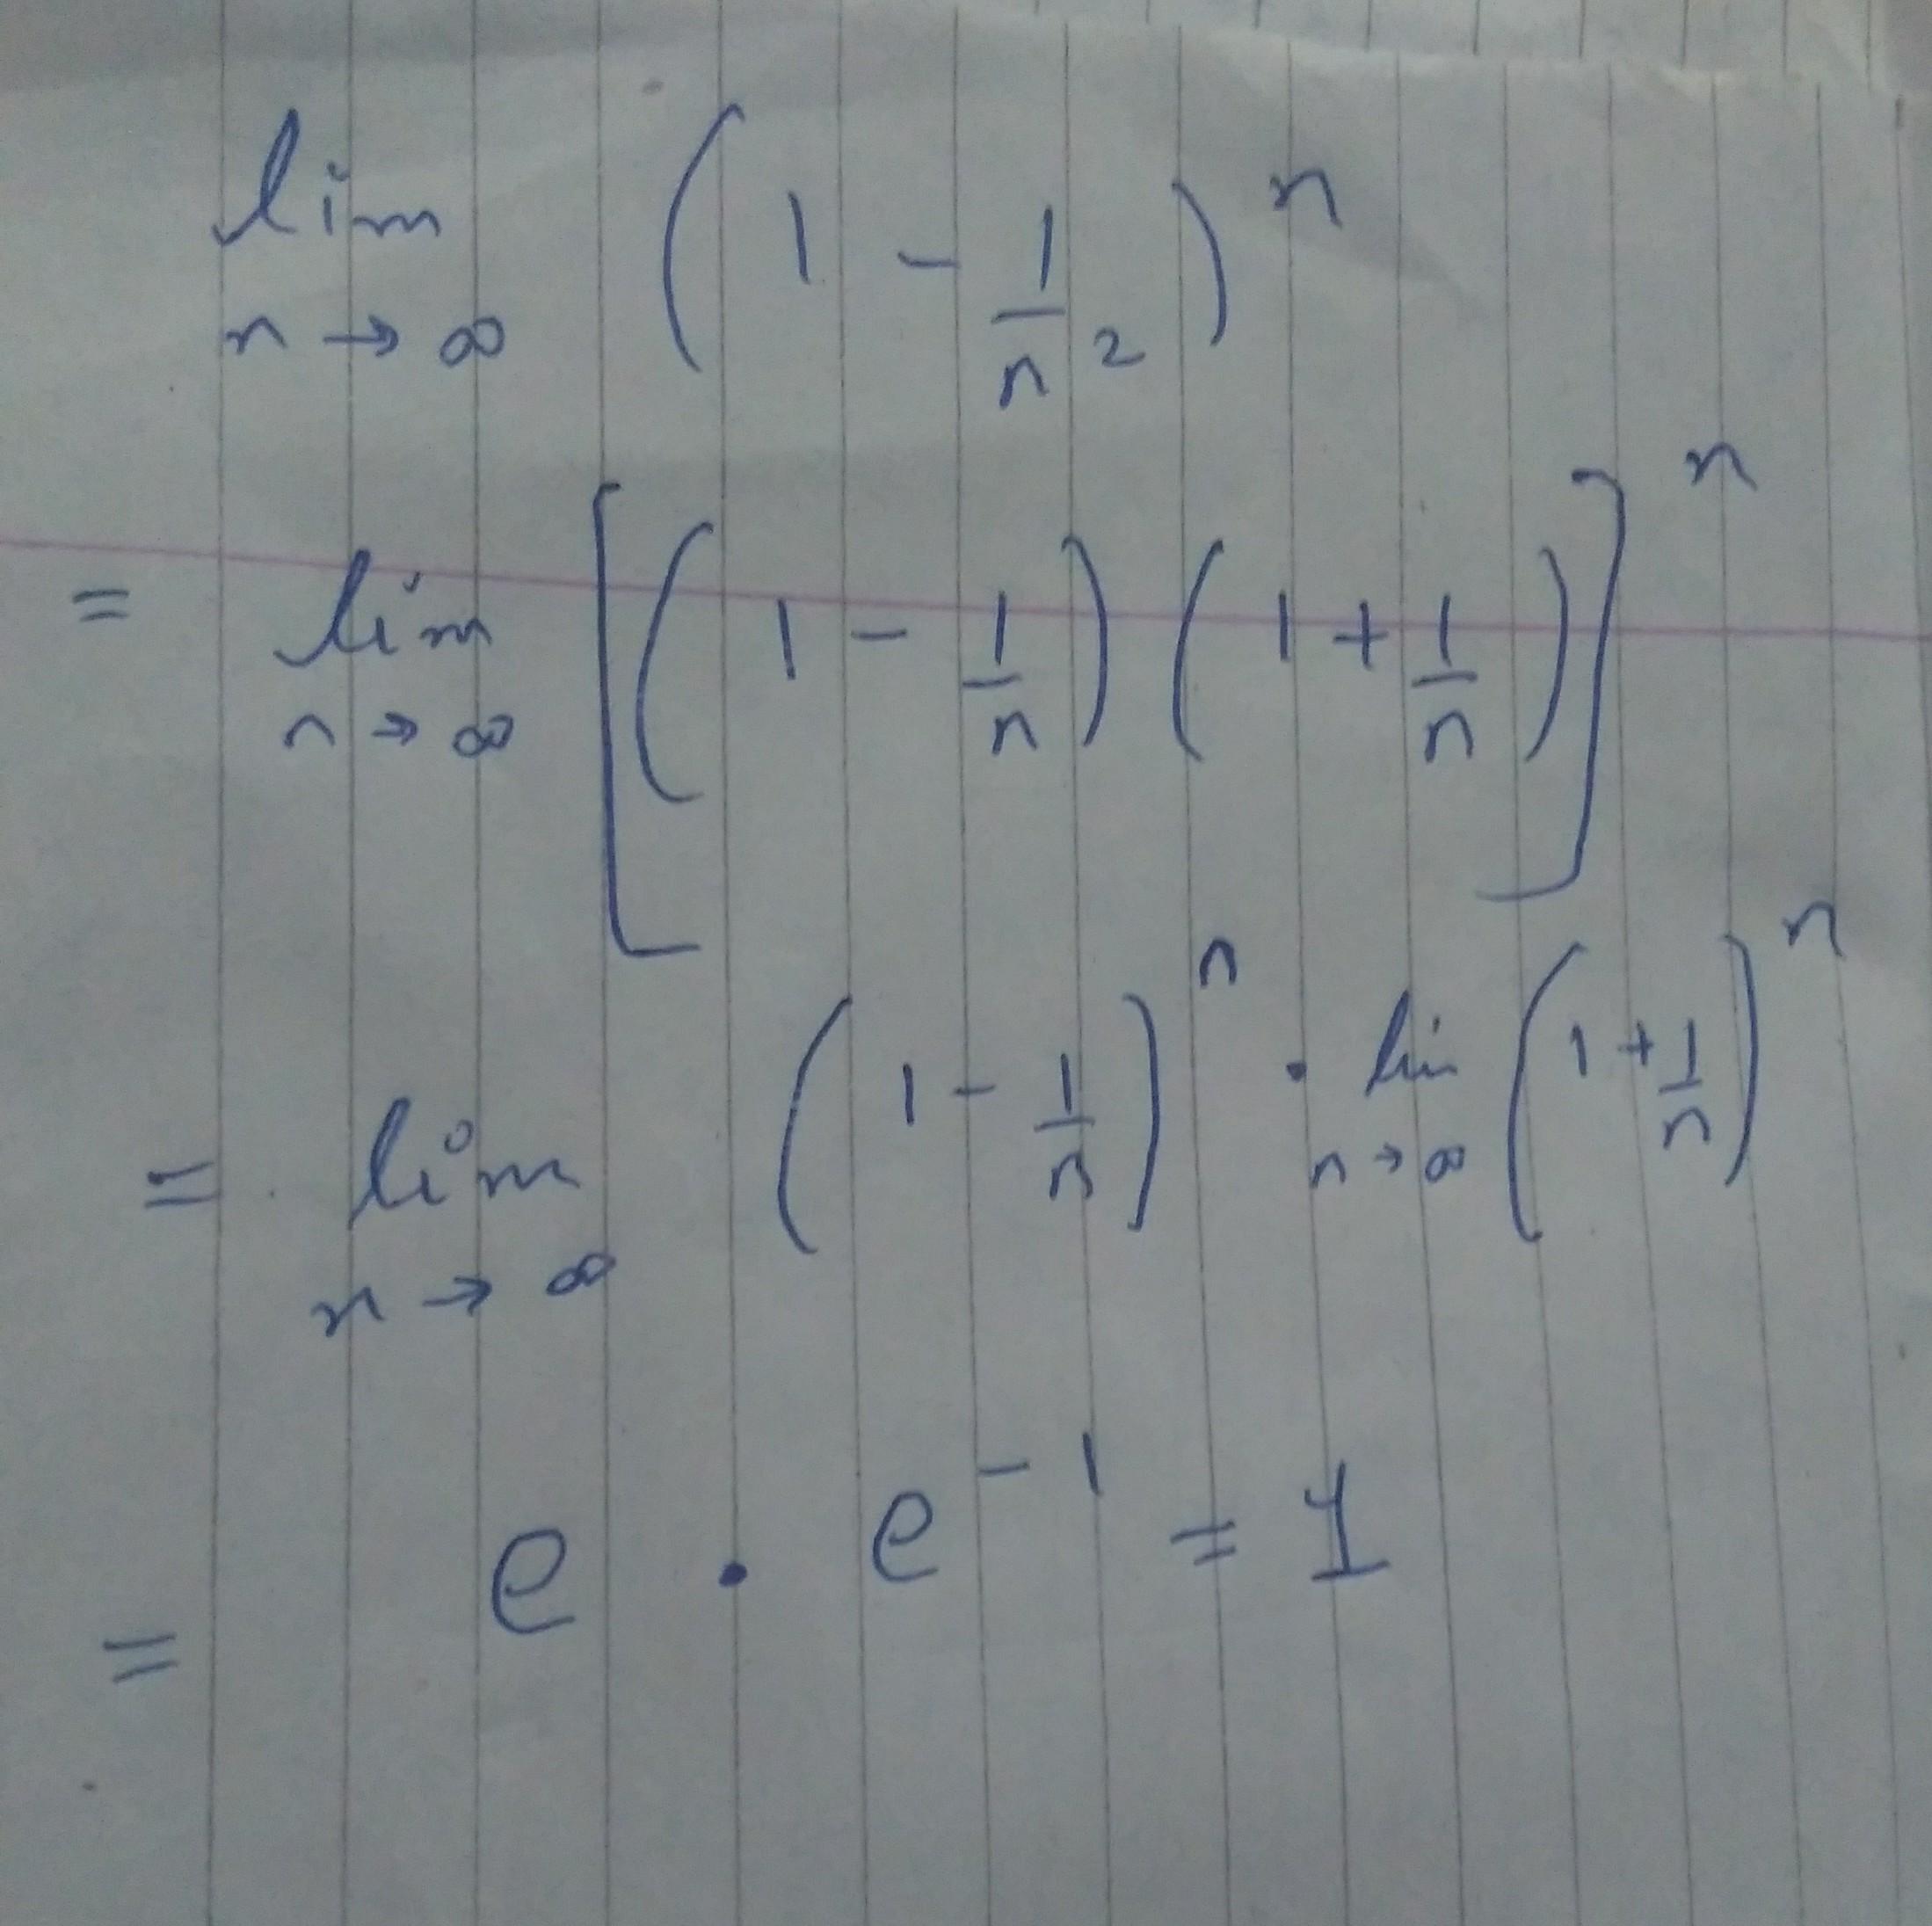 lim n→∞ (1 - 1/n²)ⁿ
= lim n→∞ [(1 - 1/n)(1 + 1/n)]ⁿ
= lim n→∞ (1 - 1/n)ⁿ · lim n→∞ (1 + 1/n)ⁿ
= e · e⁻¹ = 1